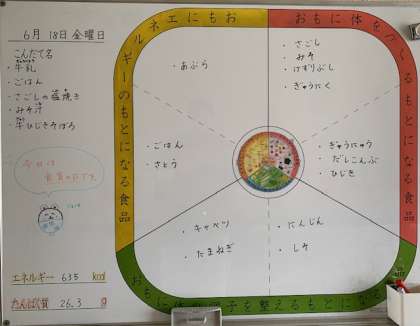 6月 18日 金曜日
こんだて名
・牛乳
・ごはん
・さごしの塩焼き
・みそ汁
・牛ひじきそぼろ
今日は
食育の日です。
エネルギー 635 kcal
たんぱく質 26.3 g
おもにエネルギーのもとになる食品
・あぶら
・ごはん
・さとう
おもに体をつくるもとになる食品
・さごし
・みそ
・けずりぶし
・ぎゅうにく
・ぎゅうにゅう
・だしこんぶ
・ひじき
おもに体の調子を整えるもとになる食品
・キャベツ
・たまねぎ
・にんじん
・しそ